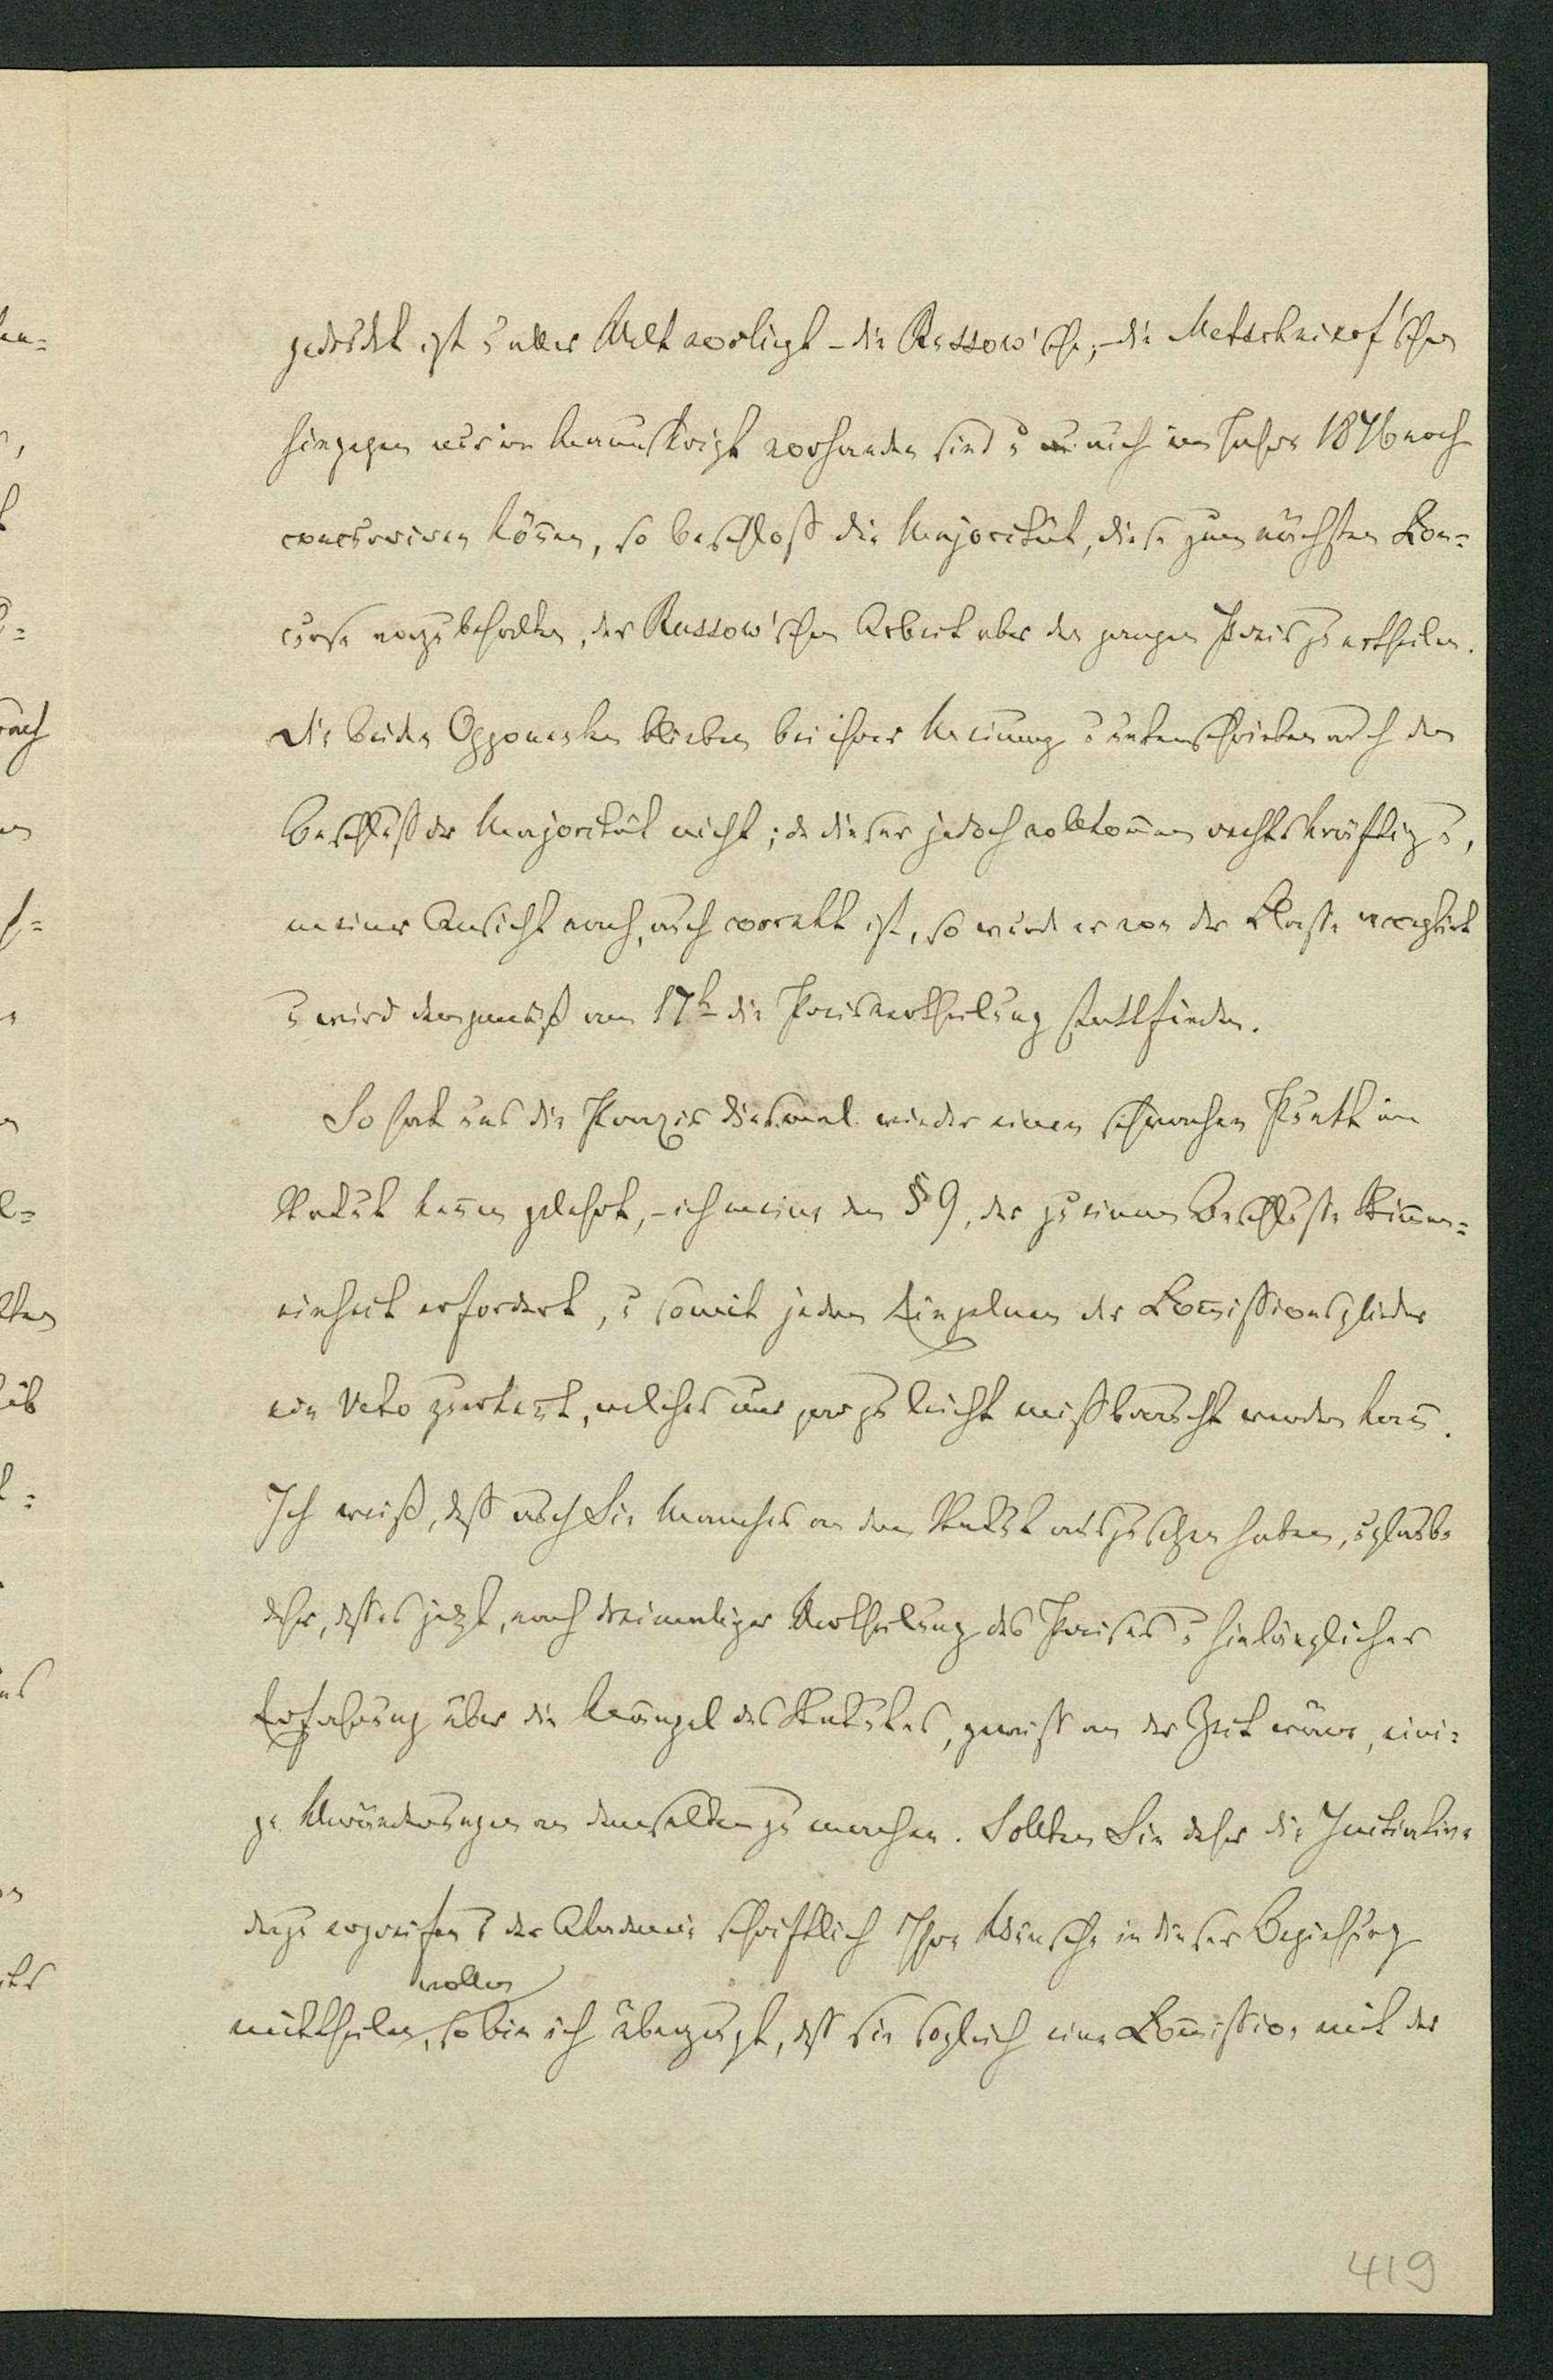 gedruckt ist u aller Welt vorliegt – die Russow'sche, – die Metschnikof'schen
hingegen nur im Manuskript vorhanden sind u auch im Jahre 1876 noch
concurriren können, so beschloß die Majorität, diese zum nächsten Con-
curse vorzubehalten, der Russow'schen Arbeit aber den ganzen Preis zu ertheilen.
Die beiden Opponenten blieben bei ihrer Meinung u unterschrieben auch den
Beschluß der Majorität nicht; da dieser jedoch vollkommen rechtskräftig u,
meiner Ansicht nach, auch correkt ist, so wurde er von der Classe acceptirt
u wird demgemäß am 17t die Preisvertheilung stattfinden.
So hat uns die Praxis diesmal wieder einen schwachen Punkt im
Statut kennen gelehrt, – ich meine den § 9, der zu einem Beschlusse Stimmen-
einheit erfordert, u somit jedem Einzelnen der Commissionsglieder
ein Veto zuerkennt, welches nur gar zu leicht mißbraucht werden kann.
Ich weiß, daß auch Sie Manches an dem Statut auszusetzen haben, u glaube
daher, daß es jetzt, nach dreimaliger Vertheilung des Preises u hinlänglicher
Erfahrung über die Mängel des Statutes, gewiß an der Zeit wäre, eini-
ge Veränderungen an demselben zu machen. Sollten Sie daher die Initiative
dazu ergreifen u der Akademie schriftlich Ihre Wünsche in dieser Beziehung
wollen
mittheilen, so bin ich überzeugt, daß sie sogleich eine Commission mit der
419